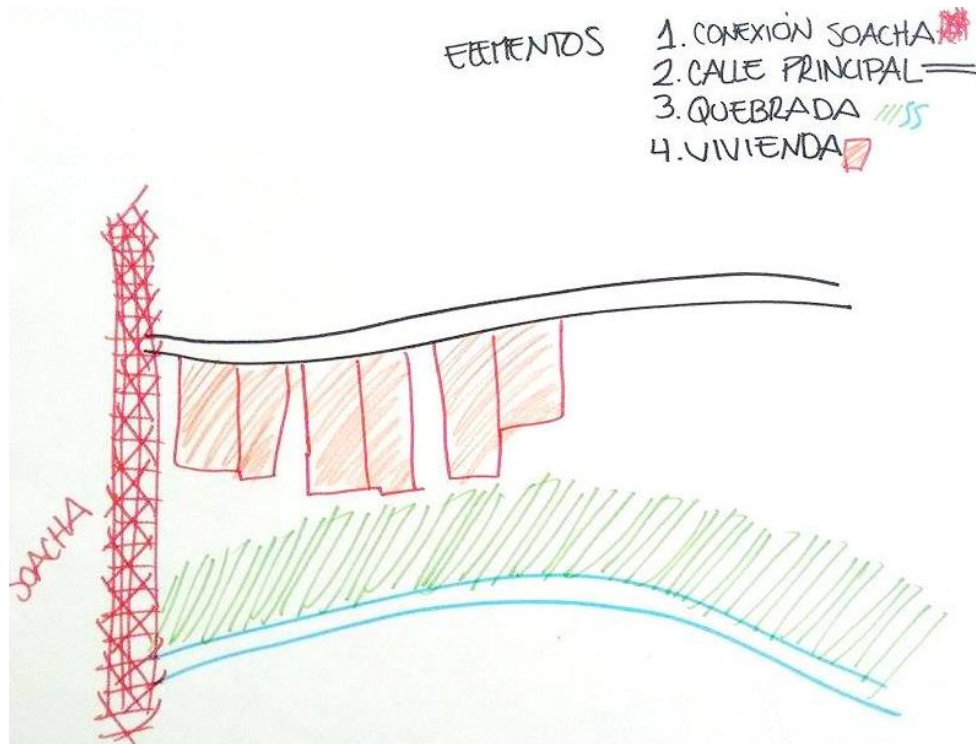 ELEMENTOS
1. CONEXIÓN SOACHA
2. CALLE PRINCIPAL
3. QUEBRADA
4. VIVIENDA
SOACHA